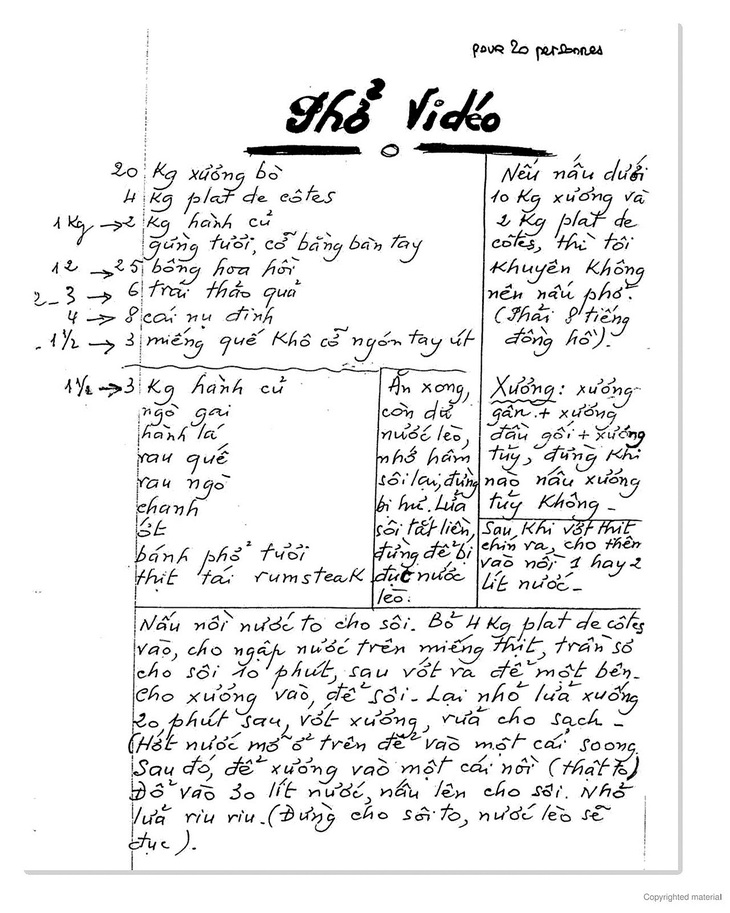 pour 20 personnes
Phở Vidéo
20 Kg xưởng bò
4 Kg plat de côtes
1 Kg → 2 Kg hành củ
gừng tươi, cỡ bằng bàn tay
12 → 25 bông hoa hồi
2_3 → 6 trái thảo quả
4 → 8 cái nụ đinh
1 1/2 → 3 miếng quế khô cỡ ngón tay út
Nếu nấu dưới
10 Kg xưởng và
2 Kg plat de
côtes, thì tôi
khuyên không
nên nấu phở.
(Phải 8 tiếng
đồng hồ).
1 1/2 → 3 Kg hành củ
ngò gai
hành lá
rau quế
rau ngò
chanh
ớt
bánh phở tươi
thịt tái rumsteaK
Ăn xong,
còn dư
nước lèo,
nhớ hâm
sôi lại, đừng
bị hư. Lửa
sôi tắt liền,
đừng để bị
đục nước
lèo.
Xưởng: xưởng
gân + xưởng
đầu gối + xưởng
tủy, đừng khi
nào nấu xưởng
tủy không _
Sau khi vớt thịt
chín ra, cho thêm
vào nồi 1 hay 2
lít nước _
Nấu nồi nước to cho sôi. Bỏ 4 Kg plat de côtes
vào, cho ngập nước trên miếng thịt, trần sơ
cho sôi 10 phút, sau vớt ra để một bên_
cho xưởng vào, để sôi _ Lại nhỏ lửa xuống
20 phút sau, vớt xưởng, rửa cho sạch _
(Hớt nước mỡ ở trên để vào một cái soong.
Sau đó, để xưởng vào một cái nồi (thật to)
Đổ vào 30 lít nước, nấu lên cho sôi. Nhỏ
lửa riu riu. (Đừng cho sôi to, nước lèo sẽ
đục).
Copyrighted material